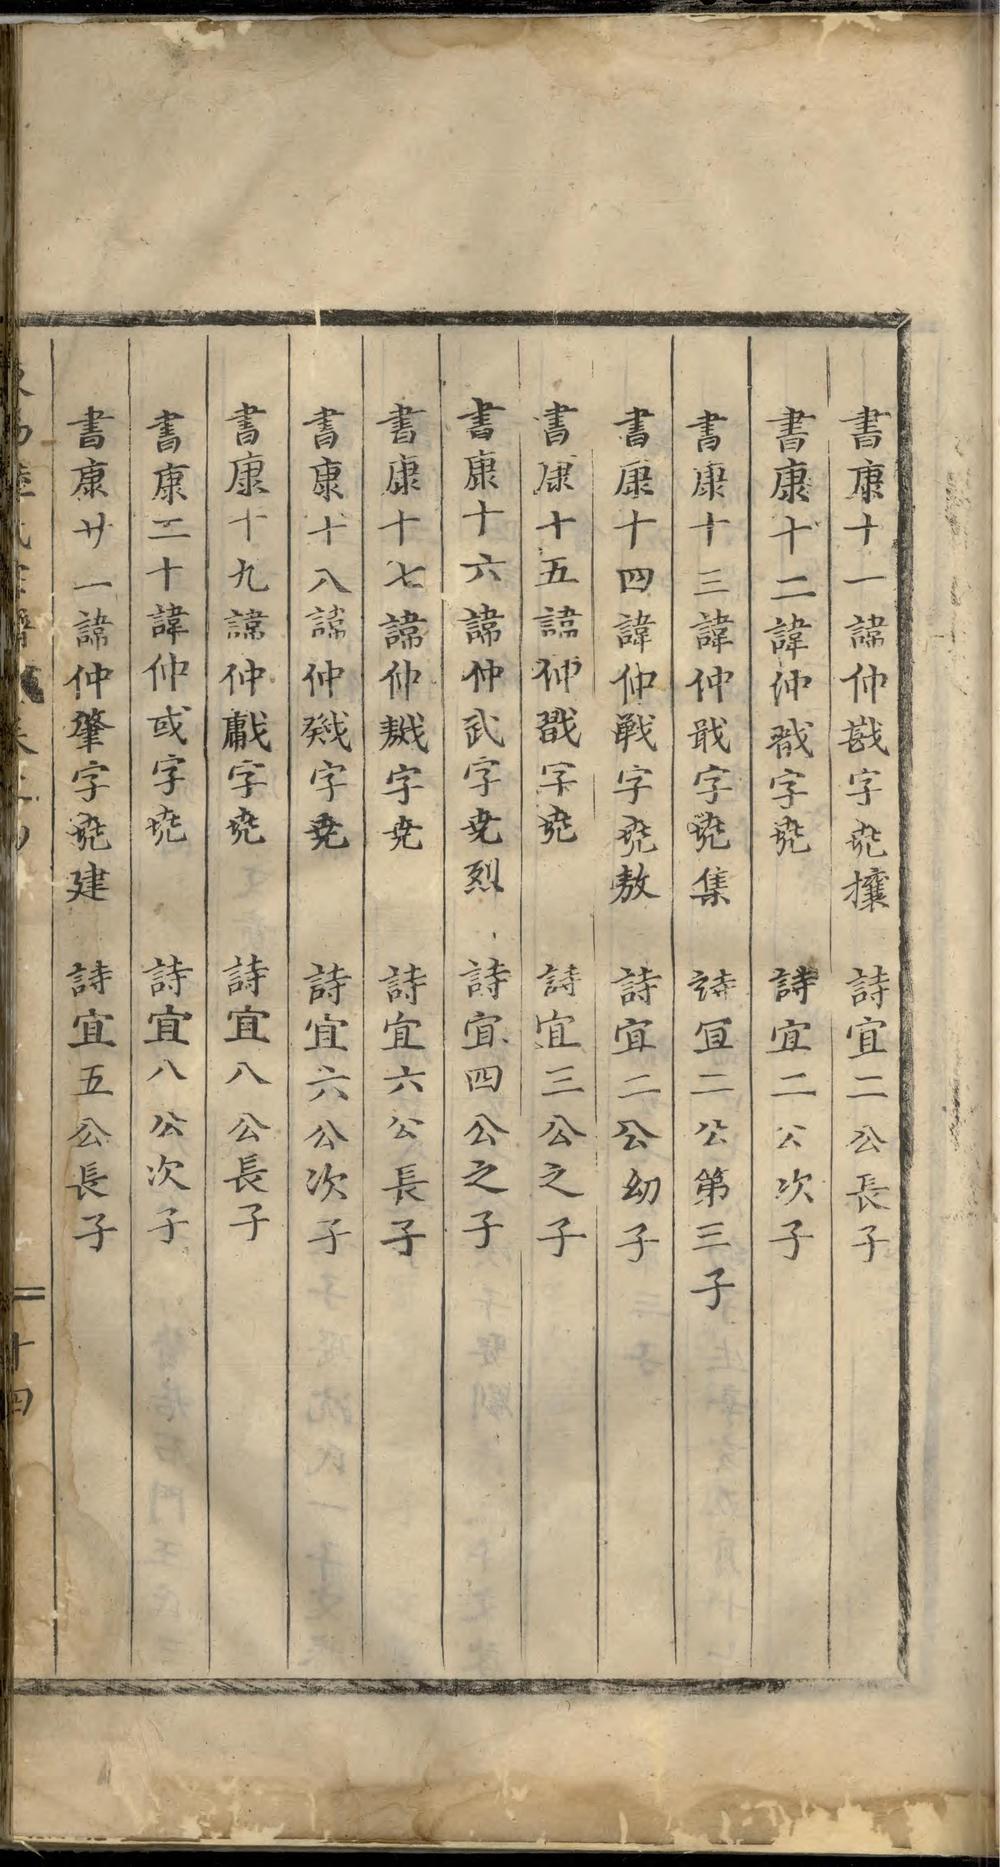 書康十一諱仲戡字堯攘 詩宜二公長子
書康十二諱仲戩字堯 詩宜二公次子
書康十三諱仲戢字堯集 詩宜二公第三子
書康十四諱仲戰字堯敖 詩宜二公幼子
書康十五諱仲戬字堯 詩宜三公之子
書康十六諱仲武字堯烈 詩宜四公之子
書康十七諱仲字堯 詩宜六公長子
書康十八諱仲字堯 詩宜六公次子
書康十九諱仲字堯 詩宜八公長子
書康二十諱仲或字堯 詩宜八公次子
書康廿一諱仲肇字堯建 詩宜五公長子
十四